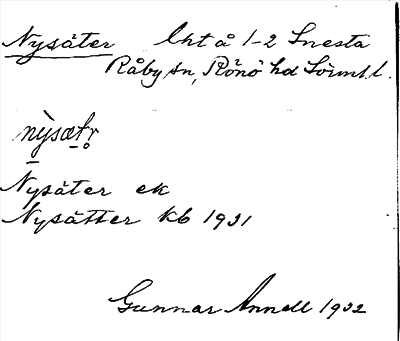 Nysäter Lht å 1-2 Snesta
Råby sn, Rönö hd Sörml. l.
nysætr
Nysäter ek
Nysätter kb 1931
Gunnar Annell 1932